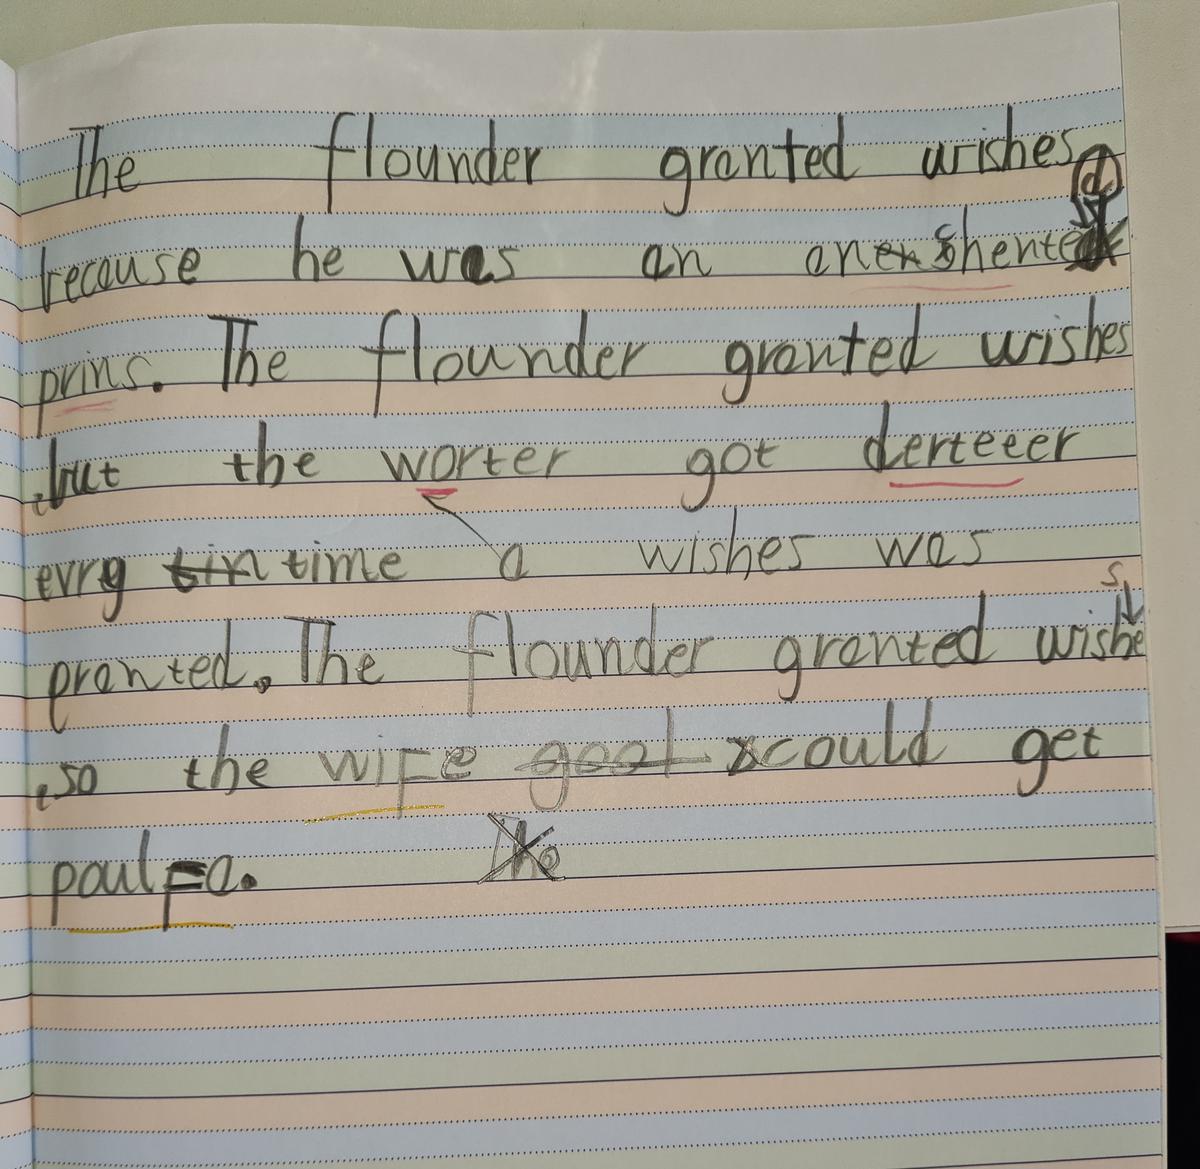 The flounder granted wishes
because he was an anenshented
prins. The flounder granted wishes
,but the worter got derteeer
evry tin time a wishes was
pranted. The flounder granted wishes
,so the wife goat could get
paulFa. The